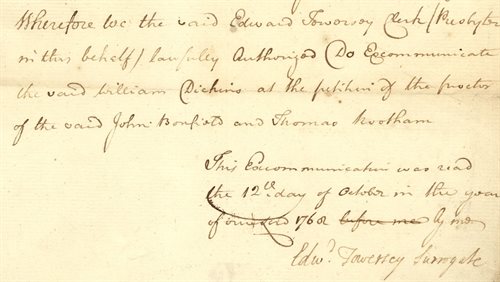 Wherefore We the said Edward Towersey Clerk /Presbyter
in this behalf/ lawfully Authorized Do Excommunicate
the said William Dickins at the petition of the proctor
of the said John Bonfield and Thomas Wootham
This Excommunication was read
the 12th day of October in the year
of our Lord 1768 before me by me
Edwd. Towersey Surrogate